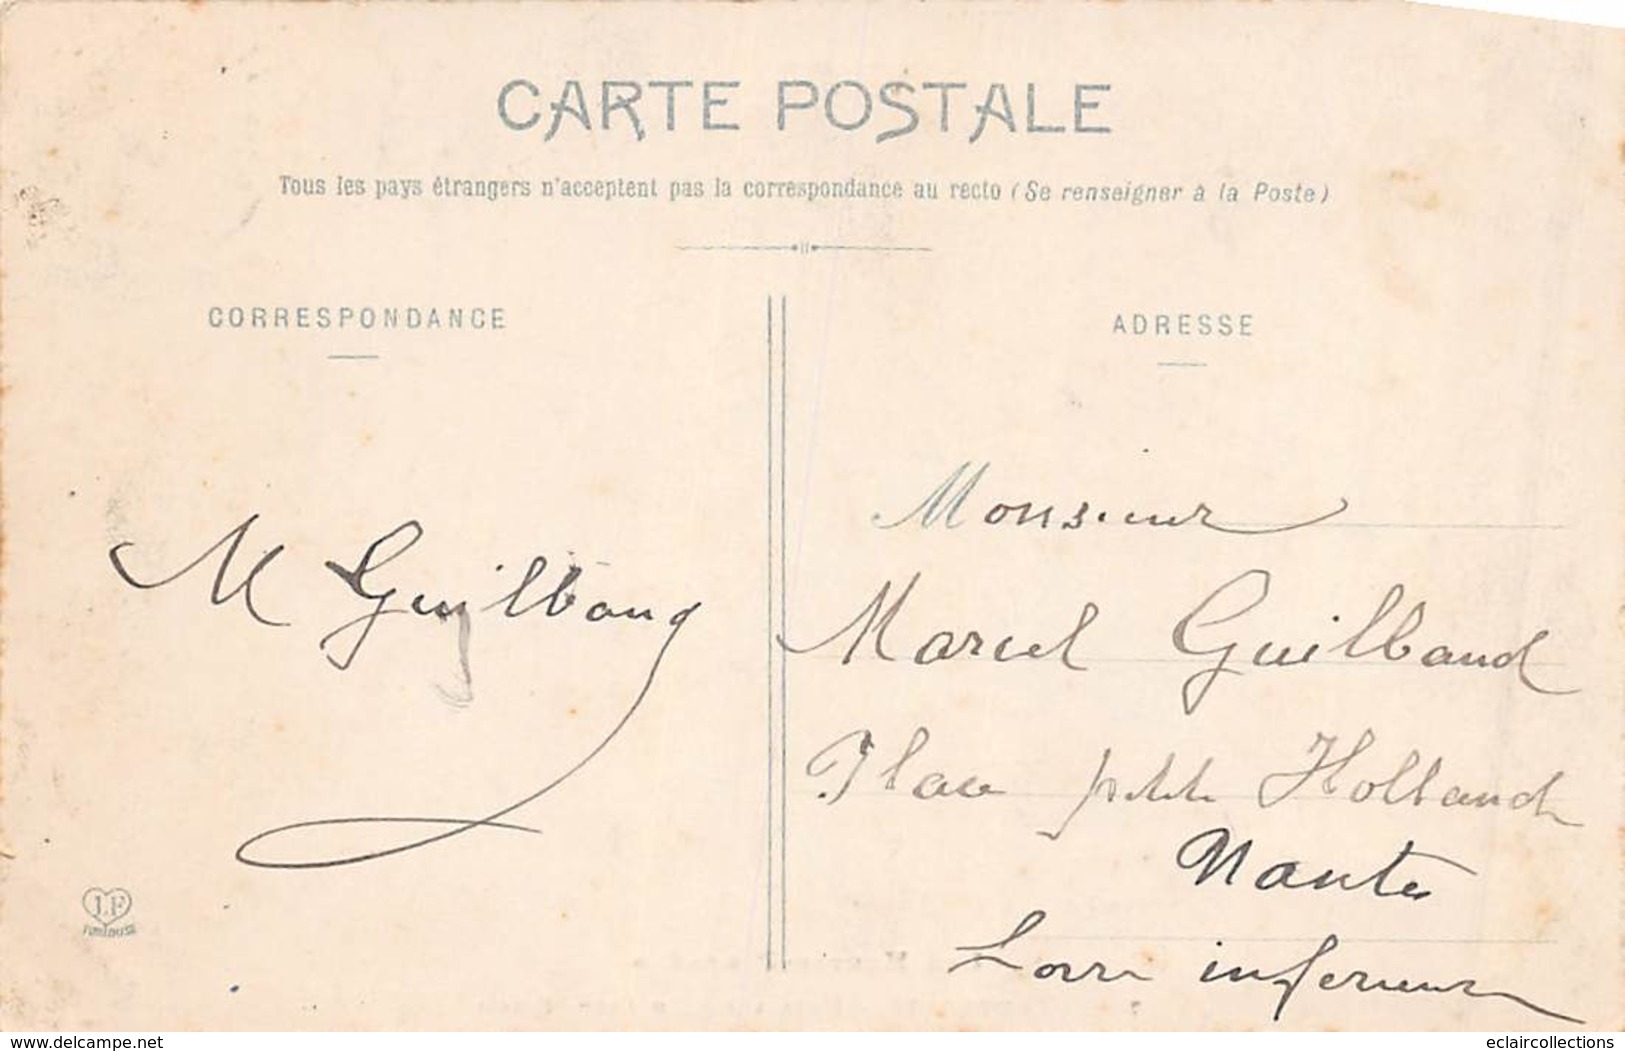 CARTE POSTALE
Tous les pays étrangers n'acceptent pas la correspondance au recto (Se renseigner à la Poste)
CORRESPONDANCE
ADRESSE
M Guilbaud
Monsieur
Marcel Guilbaud
Place petite Holland
Nantes
Loire inferieure
LF
TOULOUSE
delcampe.net
eclaircollections